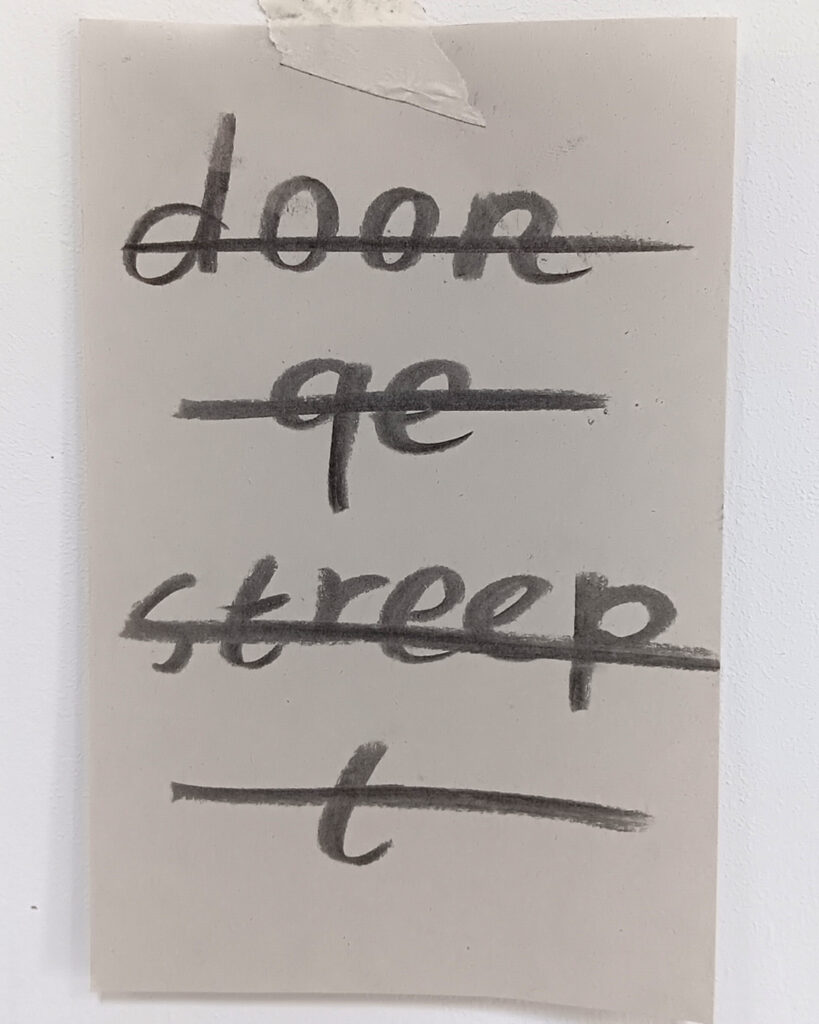 door
ge
streep
t